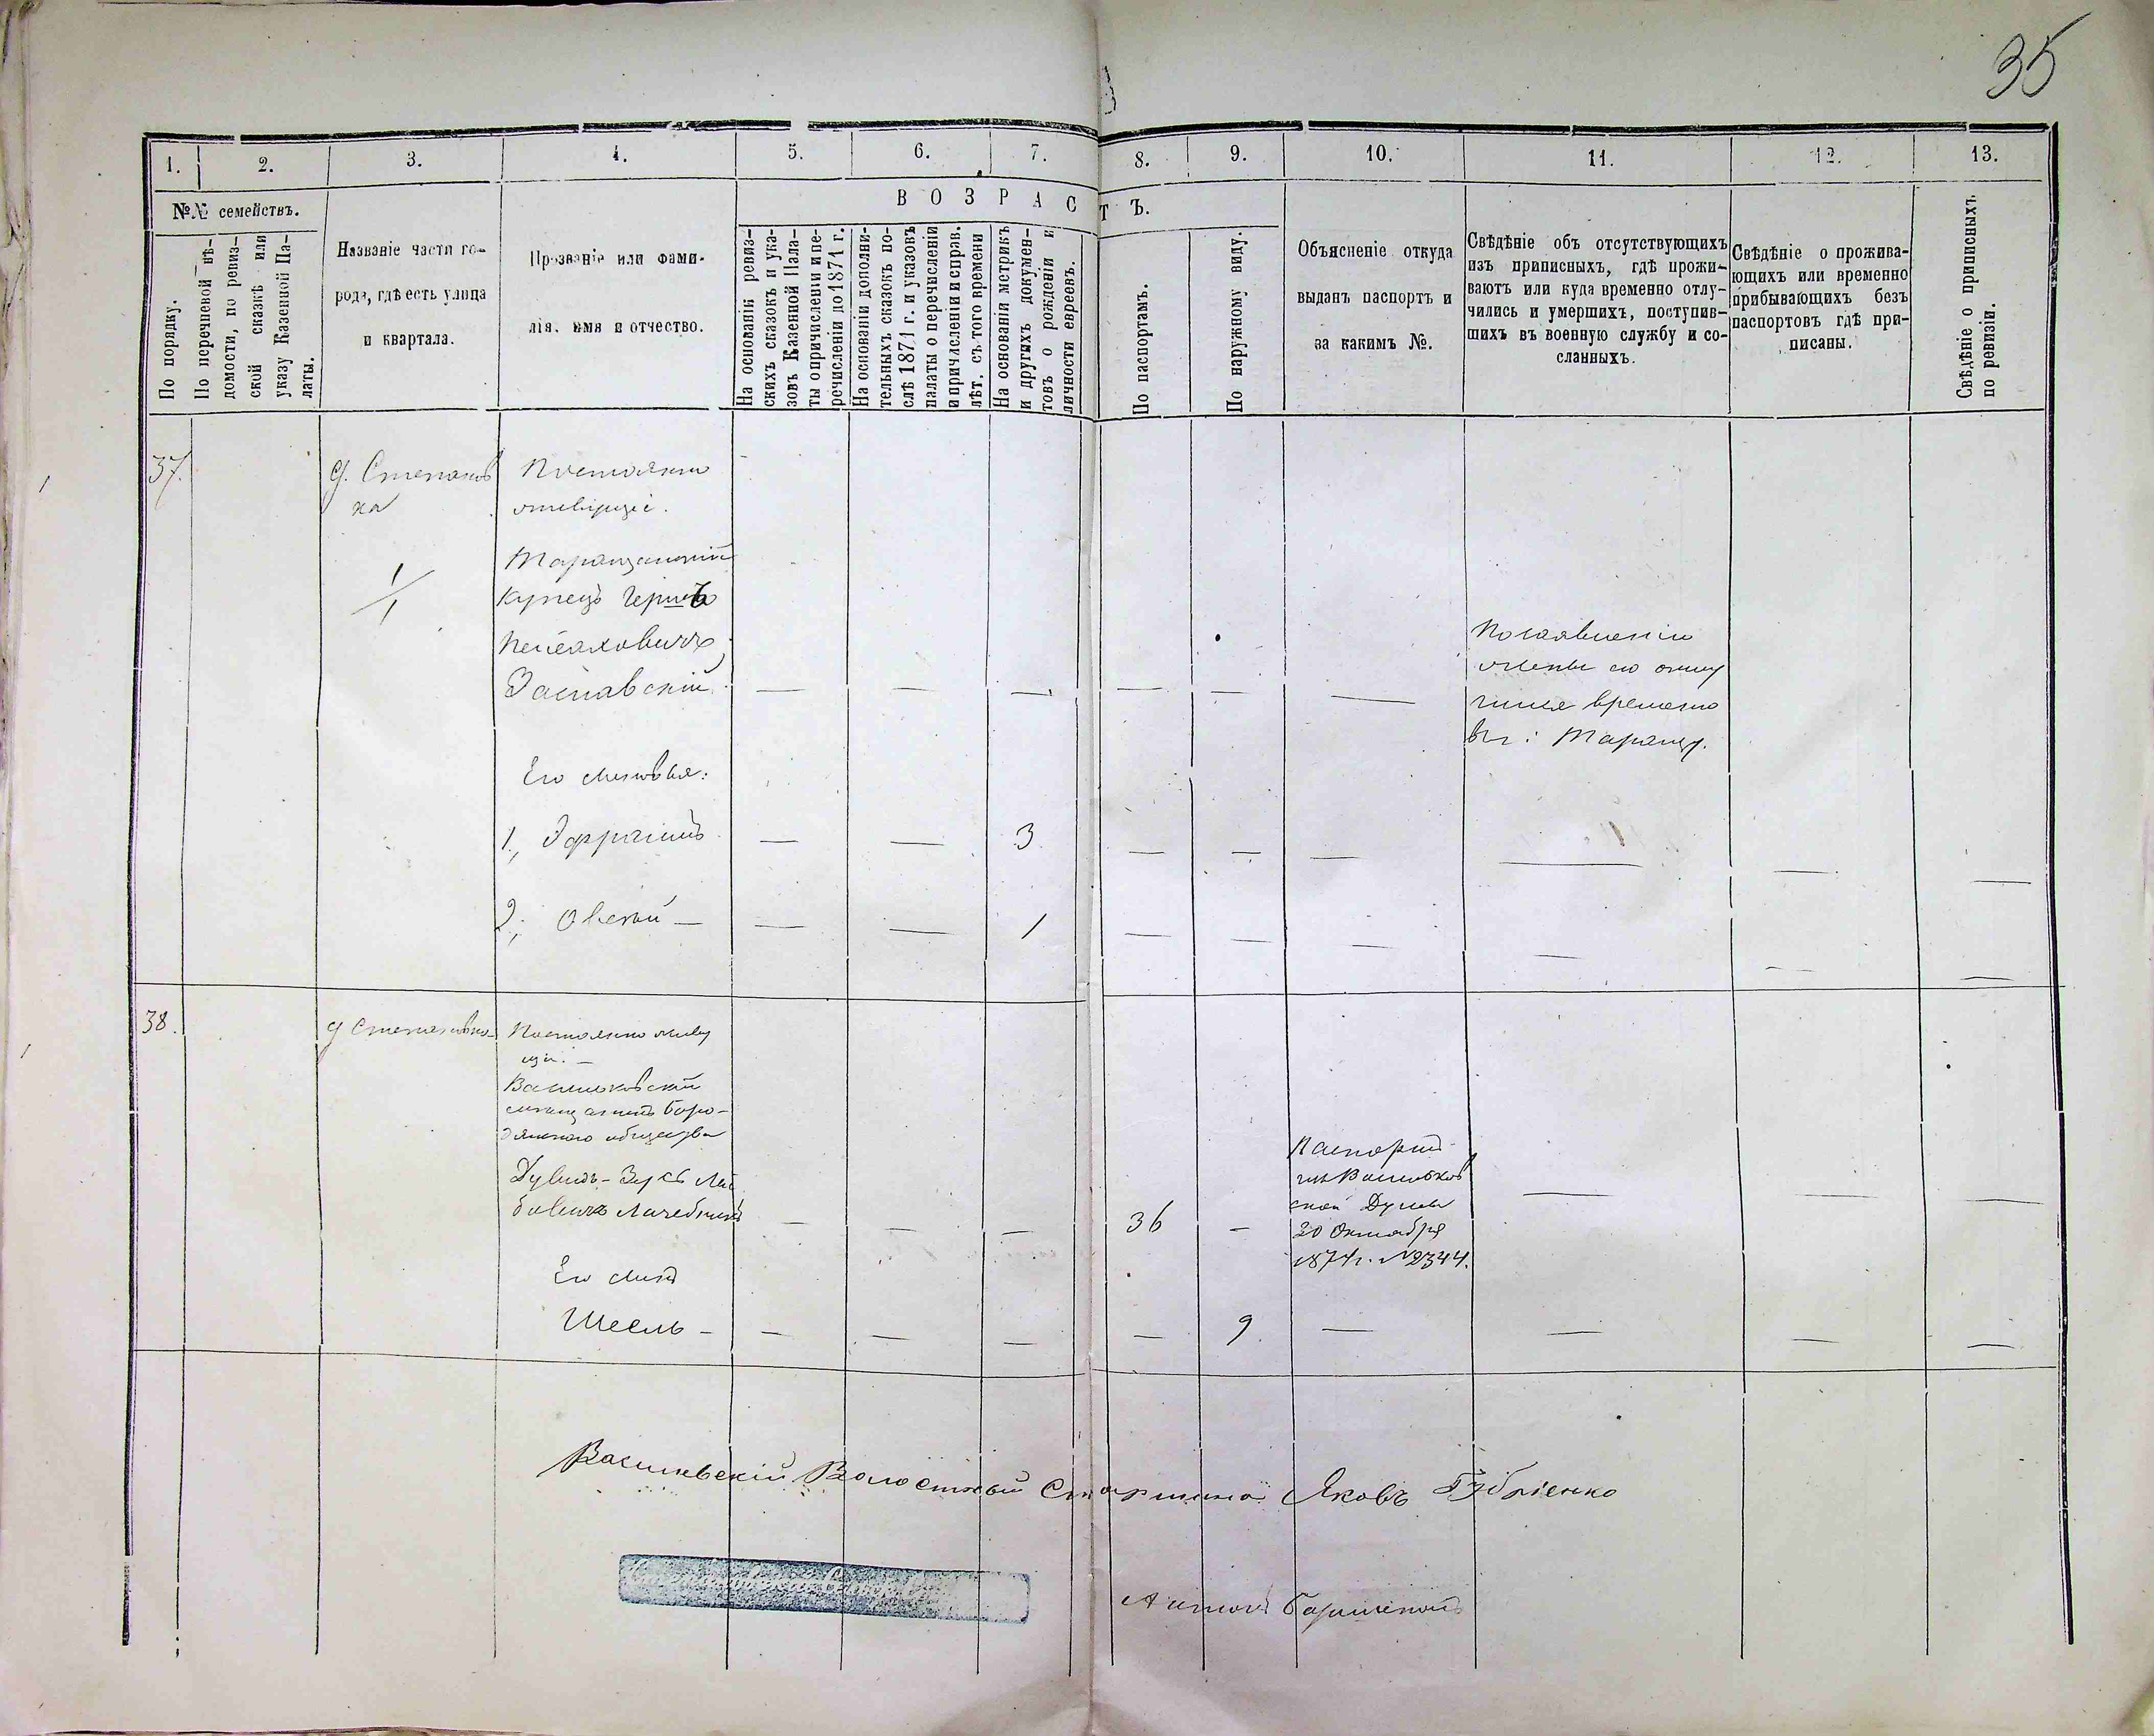 35
1.
2.
3.
4.
5.
6.
7.
8.
9.
10.
11.
12.
13.
№№ семействъ.
ВОЗРАСТЪ.
По порядку.
По перечневой вѣ-
домости, по ревиз-
ской сказкѣ или
указу Казенной Па-
латы.
Названіе части го-
рода, гдѣ есть улица
и квартала.
Прозваніе или фами-
лія, имя и отчество.
На основаніи ревиз-
скихъ сказокъ и ука-
зовъ Казенной Пала-
ты о причисленіи и пе-
речисленіи до 1871 г.
На основаніи дополни-
тельныхъ сказокъ по-
слѣ 1871 г. и указовъ
палаты о перечисленіи
и причисленіи и справ.
лѣт. съ того времени
На основаніи метрикъ
и другихъ докумен-
товъ о рожденіи и
личности евреевъ.
По паспортамъ.
По наружному виду.
Объясненіе откуда
выданъ паспортъ и
за какимъ №.
Свѣдѣніе объ отсутствующихъ
изъ приписныхъ, гдѣ прожи-
ваютъ или куда временно отлу-
чились и умершихъ, поступив-
шихъ въ военную службу и со-
сланныхъ.
Свѣдѣніе о прожива-
ющихъ или временно
прибывающихъ безъ
паспортовъ гдѣ при-
писаны.
Свѣдѣніе о приписныхъ
по ревизіи.
37.
д. Степанов
ка
1/1
Постоянно
живущіе.
Таращанскій
Купецъ Гершъ
Пейсаховичъ
Заславскій
По заявленію
жены его отлу
чился временно
въ г. Таращу.
Его сыновья:
1., Эфраимъ
3
2., Овсей
1
38.
д Степановка
Постоянно живу
щіе.
Васильковскій
мещанинъ Боро-
дянского общества
Дувидъ-Зусь Лей
бовичъ
36
Паспортъ
изъ Васильков
ской Думы
20 Октября
1874 г. №2344.
Его сынъ
Шесль
9
Василевскій Волостной Старшина Яковъ
Антонъ